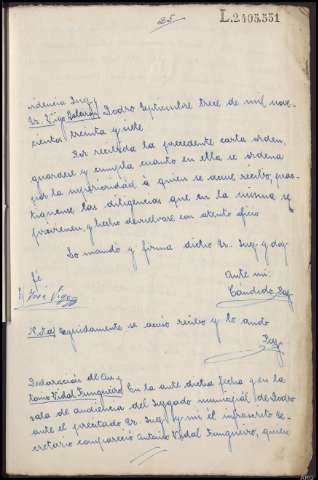 25
L.2405,351
idencia Juez
Sr. Vigo Dodro Septiembre trece de mil nove-
cientos treinta y siete
Por recibida la precedente carta orden,
guardese y cumpla cuanto en ella se ordena
por la superioridad á quien se acuse recibo; prac-
tiquense las diligencias que en la misma se
previenen, y hecho devuelvase con atento oficio
Lo mandó y firma dicho Sr. Juez y doy
fé
José Vigo
Ante mi:
Candido
Nota) Seguidamente se acusó recibo y lo anoto
Declaración de An-
tonio Vidal Fungueiro En la ante dicha fecha y en la
sala de audiencia del Juzgado municipal de Dodro
ante el precitado Sr. Juez, y mi el infrascrito Se-
cretario compareció Antonio Vidal Fungueiro, quien